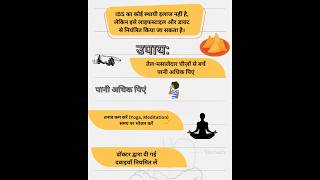 IBS का कोई स्थायी इलाज नहीं है,
लेकिन इसे लाइफस्टाइल और डायट
से नियंत्रित किया जा सकता है।
उपाय:
तेल-मसालेदार चीज़ों से बचें
पानी अधिक पिएं
पानी अधिक पिएं
तनाव कम करें (Yoga, Meditation)
समय पर भोजन करें
डॉक्टर द्वारा दी गई
दवाइयाँ नियमित लें